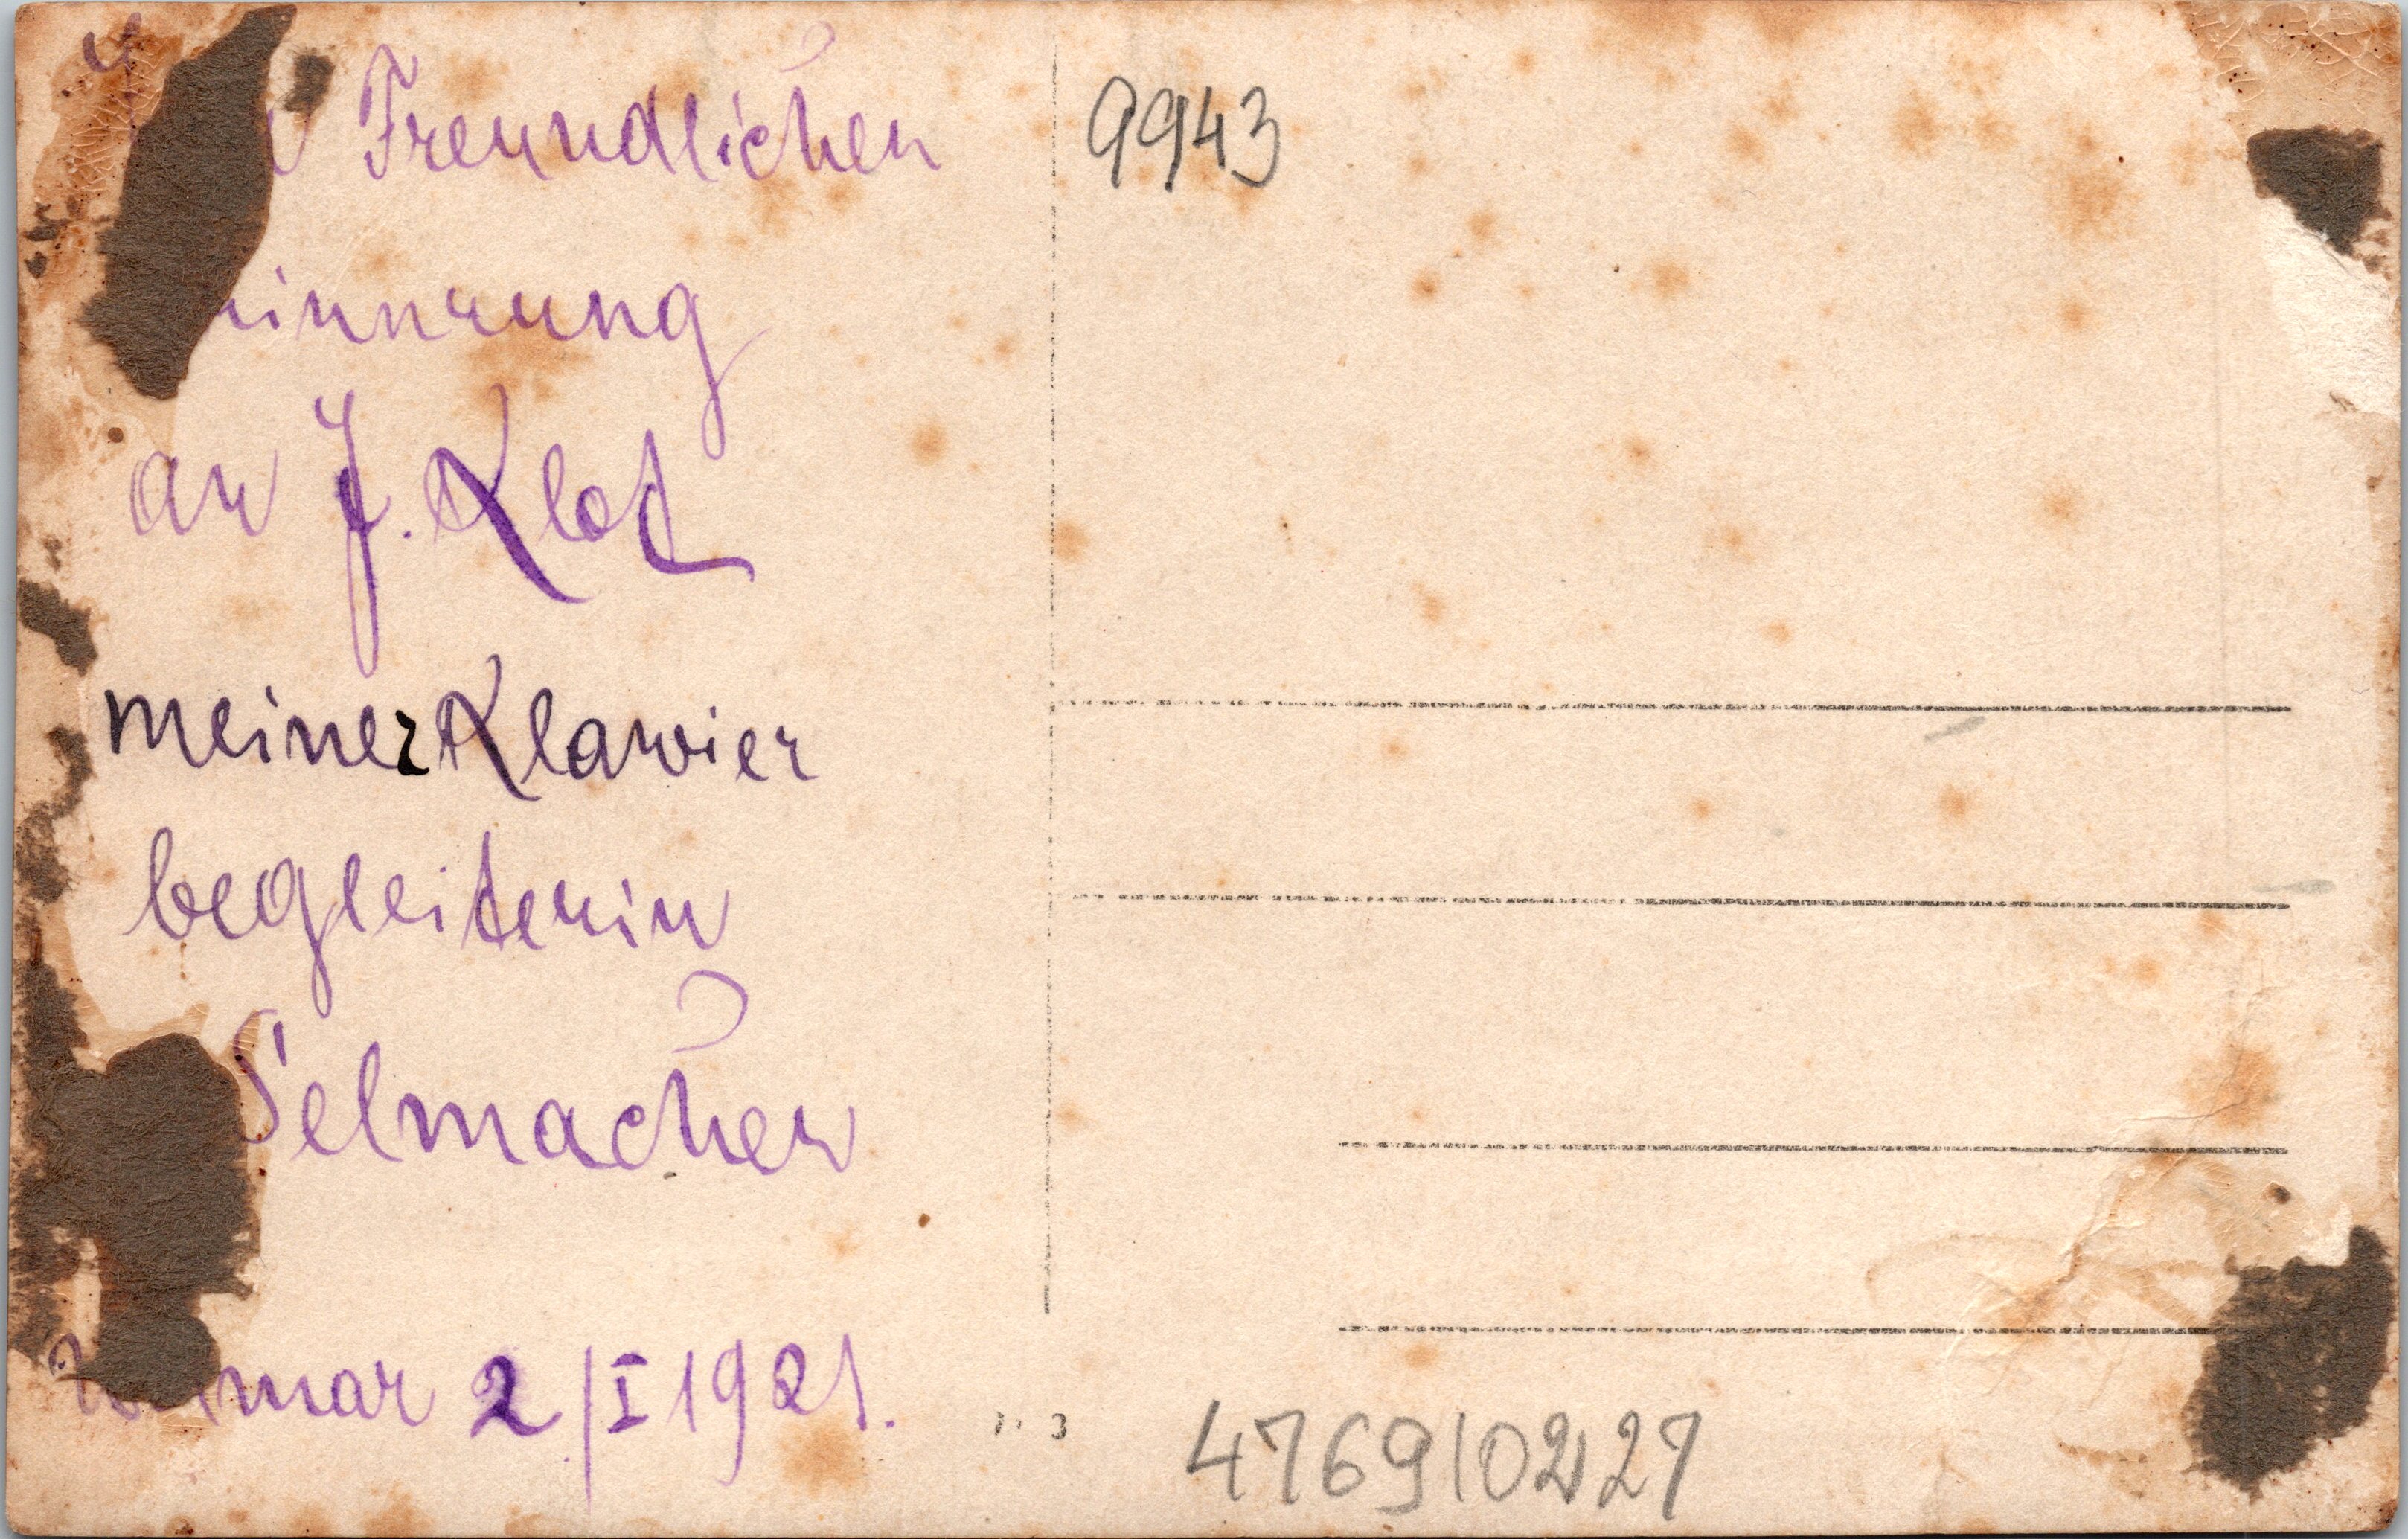 Freundlichen
innrung
an J. Klot
meiner Klawier
begleiterin
Selmachen
mar 2/I 1921.
9943
3
4769/0227